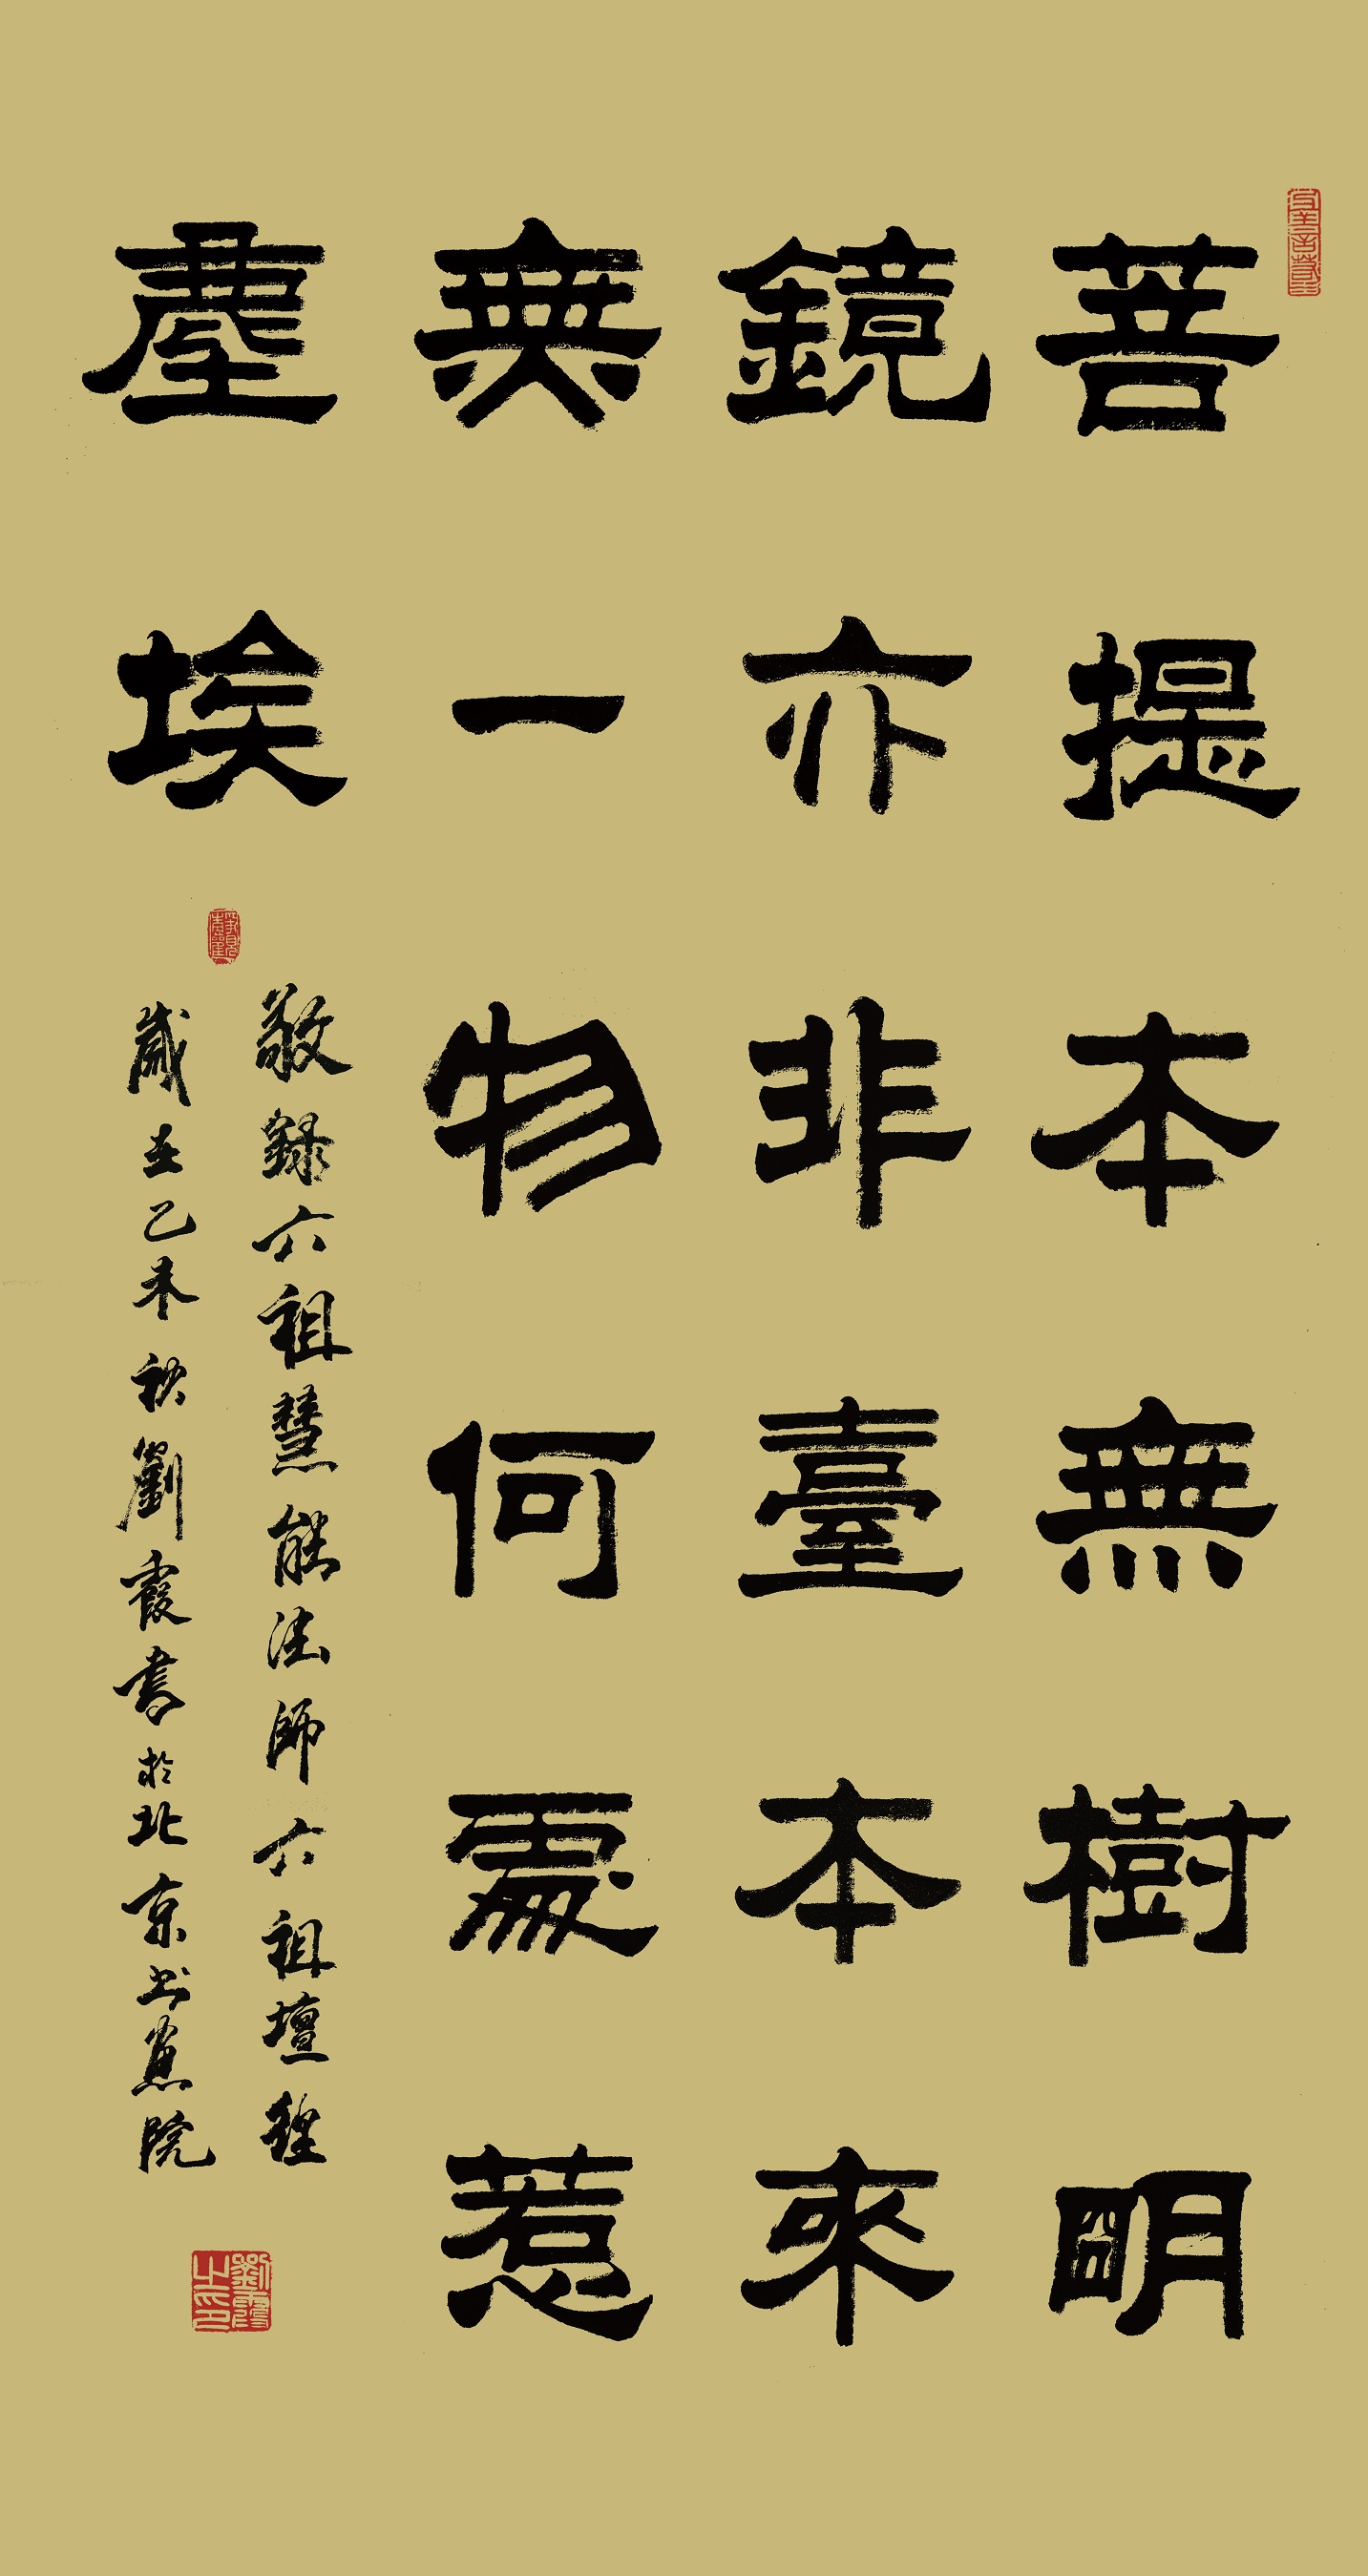 菩提本無樹明
鏡亦非臺本來
無一物何處惹
塵埃
敬録六祖慧能法師六祖壇經
歲在乙未秋劉霞書於北京书畫院
劉霞之印